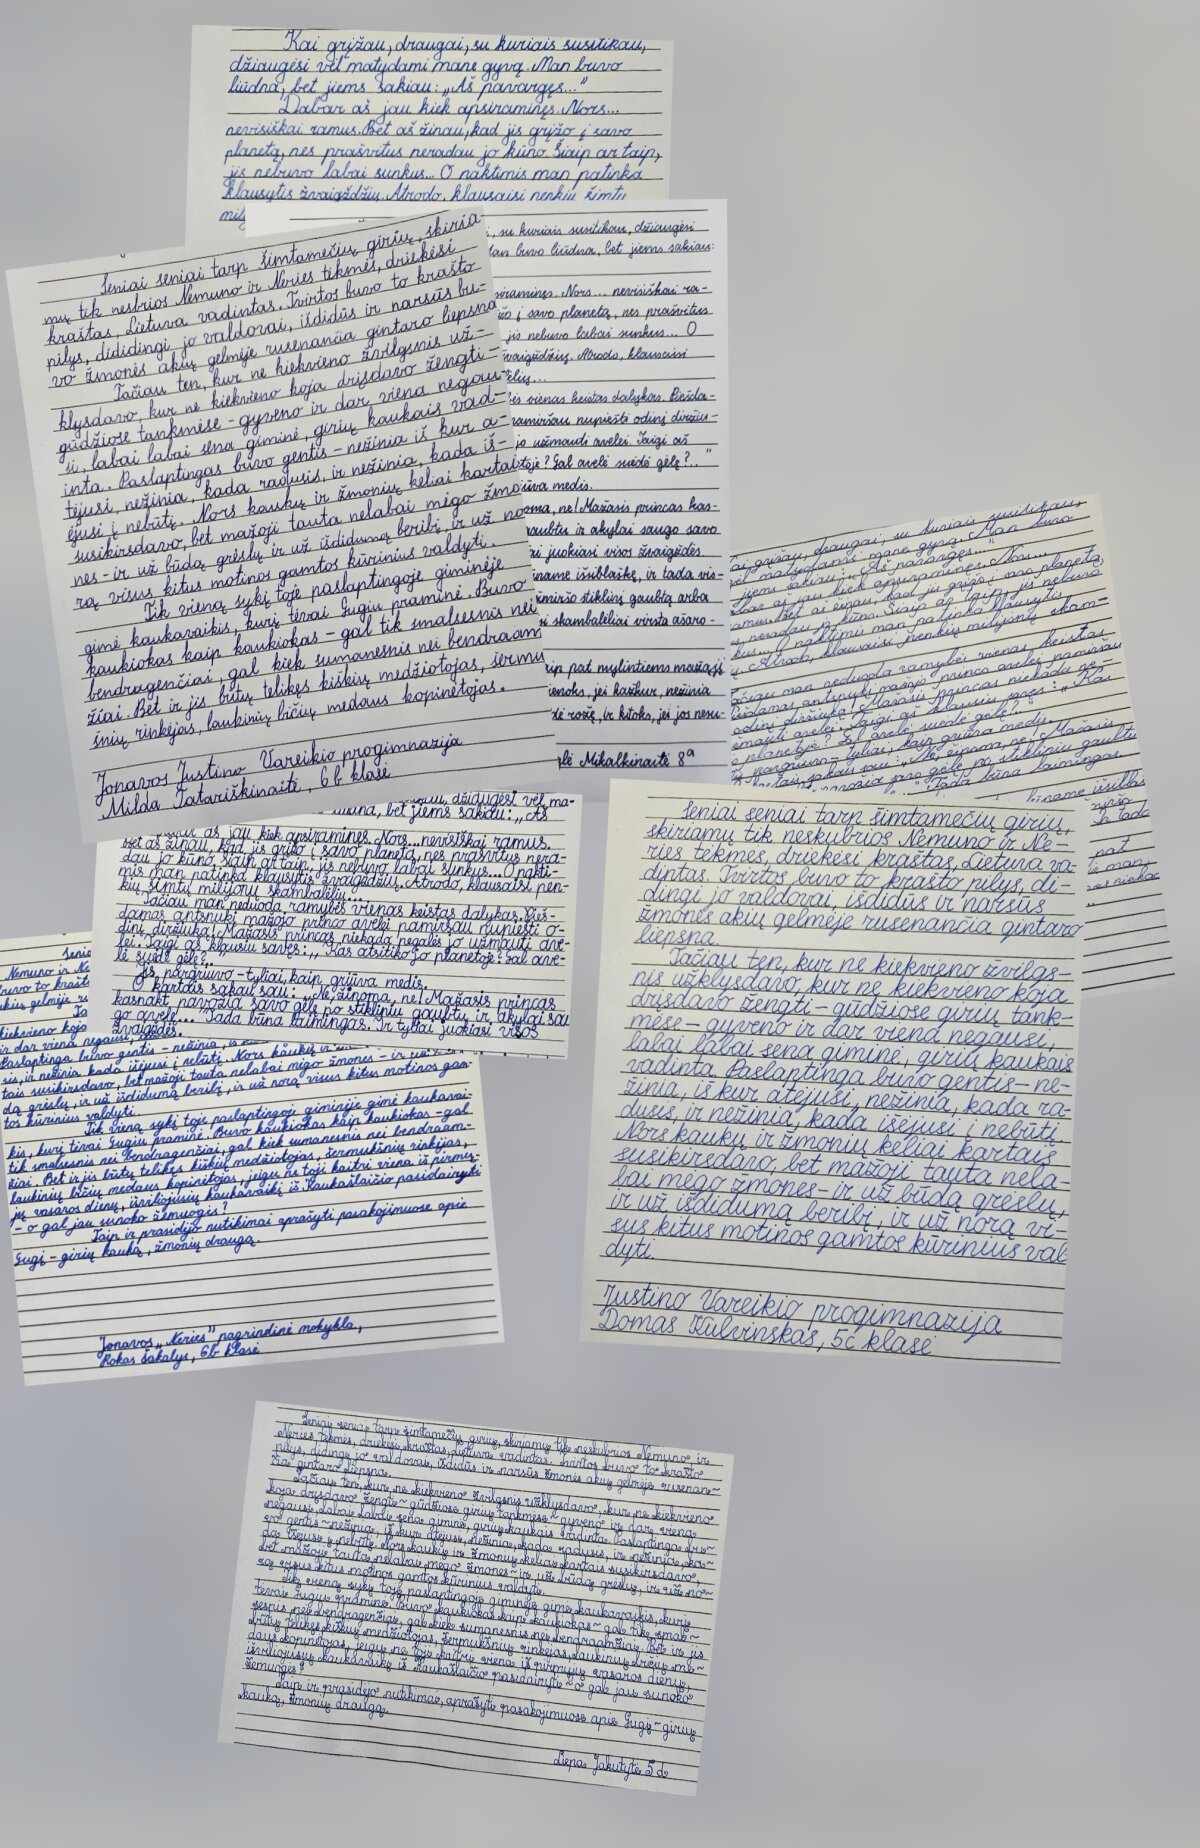 Kai grįžau, draugai, su kuriais susitikau,
džiaugėsi vėl matydami mane gyvą. Man buvo
liūdna, bet jiems sakiau: „Aš pavargęs..."
Dabar aš jau kiek apsiraminęs. Nors...
nevisiškai ramus. Bet aš žinau, kad jis grįžo į savo
planetą, nes prašvitus neradau jo kūno. Šiaip ar taip,
jis nebuvo labai sunkus... O naktimis man patinka
klausytis žvaigždžių. Atrodo, klausaisi penkių šimtų
su kuriais susitikau, džiaugėsi
buvo liūdna, bet jiems sakiau:
Nors... nevisiškai ra-
į savo planetą, nes prašvitus
jis nebuvo labai sunkus... O
Atrodo, klausaisi
vienas keistas dalykas. Piešda-
pamiršau nupiešti odinį diržiu-
jo užmauti avelei. Taigi aš
Gal avelė suėdė gėlę?.."
medis.
ne! Mažasis princas kas-
gaubtu ir akylai saugo savo
juokiasi visos žvaigždės.
išsiblaškę, ir tada vis-
pamiršo stiklinį gaubtą arba
skambalėliai virsta ašaro-
pat mylintiems mažąjį
jei kažkur, nežinia
rožę, ir kitoks, jei jos nesu-
Mikalkinaitė 8ª
Seniai seniai tarp šimtamečių girių, skiria
mų tik nesbrios Nemuno ir Neries tėkmės, driekėsi
kraštas, Lietuva vadintas. Tvirtos buvo to krašto
pilys, dididingi jo valdovai, išdidūs ir narsūs bu-
vo žmonės akių gelmėje rusenančia gintaro liepsna
Tačiau ten, kur ne kiekvieno žvilgsnis už-
klysdavo, kur ne kiekvieno koja drįsdavo žengti-
gūdžiose tankmėse - gyveno ir dar viena negau-
si, labai labai sena giminė, girių kaukais vad-
inta. Paslaptingas buvo gentis - nežinia iš kur a-
tėjusi, nežinia, kada radusis, ir nežinia, kada iš-
ėjusi į nebūtį. Nors kaukų ir žmonių keliai kartai
susikirsdavo, bet mažoji tauta nelabai mėgo žmo
nes - ir už būdą grėslų ir už išdidumą beribį, ir už no
rą visus kitus motinos gamtos kūrinius valdyti.
Tik vieną sykį toje paslaptingoje giminėje
gimė kaukavaikis, kurį tėvai Gugiu praminė. Buvo
kaukiokas kaip kaukiokas - gal tik smalsesnis nei
bendragenčiai, gal kiek sumanesnis nei bendraam
žiai. Bet ir jis būtų telikęs kiškių medžiotojas, šermu
šnių rinkėjas, laukinių bičių medaus kopinėtojas.
Jonavos Justino Vareikio progimnazija
Milda Tatariškinaitė, 6b klasė
draugai, su kuriais susitikau,
mane gyvą. Man buvo
jiems sakiau: „Aš pavargęs..."
jis grįžo į savo planetą,
neradau jo kūno. Šiaip ar taip, jis nebuvo
O naktimis man patinka klausytis
Atrodo, klausaisi penkių milijonų skam-
man neduoda ramybės vienas keistas
antsnukį mažojo princo avelei pamiršau
odinį diržiuką! Mažasis princas niekada ne-
užmauti avelei. Taigi aš klausiu savęs: „Kas
planetoje? Gal avelė suėdė gėlę?"
tyliai, kaip griūva medis.
sakau sau: „Ne, žinoma, ne! Mažasis
savo gėlę po stikliniu gaubtu
Tada būna laimingas
džiaugėsi vėl ma-
liūdna, bet jiems sakiau: „Aš
aš jau kiek apsiraminęs. Nors... nevisiškai ramus.
Bet aš žinau, kad jis grįžo į savo planetą, nes prašvitus nera-
dau jo kūno. Šiaip ar taip, jis nebuvo labai sunkus... O nakti-
mis man patinka klausytis žvaigždžių. Atrodo, klausaisi pen-
kių šimtų milijonų skambalėlių...
Tačiau man neduoda ramybės vienas keistas dalykas. Pieš-
damas antsnukį mažojo princo avelei pamiršau nupiešti o-
dinį diržiuką! Mažasis princas niekada negalės jo užmauti ave-
lei. Taigi aš klausiu savęs: „Kas atsitiko jo planetoje? Gal ave-
lė suėdė gėlę?.."
Jis pargriuvo - tyliai, kaip griūva medis.
O kartais sakau sau: „Ne, žinoma, ne! Mažasis princas
kasnakt pavožia savo gėlę po stikliniu gaubtu ir akylai sau
go avelę..." Tada būna laimingas. Ir tyliai juokiasi visos
žvaigždės.
Seniai seniai tarp šimtamečių girių,
skiriamų tik neskubrios Nemuno ir Ne-
ries tėkmės, driekėsi kraštas, Lietuva va-
dintas. Tvirtos buvo to krašto pilys, di-
dingi jo valdovai, išdidūs ir narsūs
žmonės akių gelmėje rusenančia gintaro
liepsna.
Tačiau ten, kur ne kiekvieno žvilgs-
nis užklysdavo, kur ne kiekvieno koja
drįsdavo žengti - gūdžiose girių tank-
mėse - gyveno ir dar viena negausi,
labai labai sena giminė, girių kaukais
vadinta. Paslaptinga buvo gentis - ne-
žinia, iš kur atėjusi, nežinia, kada ra-
dusis, ir nežinia, kada išėjusi į nebūtį.
Nors kaukų ir žmonių keliai kartais
susikirsdavo, bet mažoji tauta nela-
bai mėgo žmones - ir už būdą grėslų,
ir už išdidumą beribį, ir už norą vi-
sus kitus motinos gamtos kūrinius val
dyti.
Justino Vareikio progimnazija
Domas Kulvinskas, 5c klasė
Nemuno ir
buvo to
gelmėje
kiekvieno koja
ir dar viena negausi,
Paslaptinga buvo gentis - nežinia, iš
sis, ir nežinia kada išėjusi į nebūtį. Nors kaukų ir
tais susikirsdavo, bet mažoji tauta nelabai mėgo žmones - ir už bū-
dą grėslų, ir už išdidumą beribį, ir už norą visus kitus motinos gam-
tos kūrinius valdyti.
Tik vieną sykį toje paslaptingoje giminėje gimė kaukavai-
kis, kurį tėvai Gugiu praminė. Buvo kaukiokas kaip kaukiokas - gal
tik smalsesnis nei bendragenčiai, gal kiek sumanesnis nei bendraam-
žiai. Bet ir jis būtų telikęs kiškių medžiotojas, šermukšnių rinkėjas,
laukinių bičių medaus kopinėtojas, jeigu ne toji kaitri viena iš pirmų-
jų vasaros dienų, išviliojusių kaukavaikį iš Kaukašlaičio pasidairyti
- o gal jau sunoko žemuogės?
Taip ir prasidėjo nutikimai aprašyti pasakojimuose apie
Gugį - girių kauką, žmonių draugą.
Jonavos „Neries" pagrindinė mokykla,
Rokas Sakalys, 6b klasė
Seniai seniai tarp šimtamečių girių, skiriamų tik neskubrios Nemuno ir
Neries tėkmės, driekėsi kraštas, Lietuva vadintas. Tvirtos buvo to krašto
pilys, didingi jo valdovai, išdidūs ir narsūs žmonės akių gelmėje rusenan-
čia gintaro liepsna.
Tačiau ten, kur ne kiekvieno žvilgsnis užklysdavo, kur ne kiekvieno
koja drįsdavo žengti - gūdžiose girių tankmėse - gyveno ir dar viena
negausi, labai labai sena giminė, girių kaukais vadinta. Paslaptinga bu-
vo gentis - nežinia, iš kur atėjusi, nežinia, kada radusis, ir nežinia, ka-
da išėjusi į nebūtį. Nors kaukų ir žmonių keliai kartais susikirsdavo,
bet mažoji tauta nelabai mėgo žmones - ir už būdą grėslų, ir už no-
rą visus kitus motinos gamtos kūrinius valdyti.
Tik vieną sykį toje paslaptingoje giminėje gimė kaukavaikis, kurį
tėvai Gugiu praminė. Buvo kaukiokas kaip kaukiokas - gal tik smal-
sesnis nei bendragenčiai, gal kiek sumanesnis nei bendraamžiai. Bet ir jis
būtų telikęs kiškių medžiotojas, šermukšnių rinkėjas, laukinių bičių me-
daus kopinėtojas, jeigu ne toji kaitri viena iš pirmųjų vasaros dienų,
išviliojusių kaukavaikį iš Kaukašlaičio pasidairyti - o gal jau sunoko
žemuogės?
Taip ir prasidėjo nutikimai, aprašyti pasakojimuose apie Gugį - girių
kauką, žmonių draugą.
Liepa Jakutytė 5d